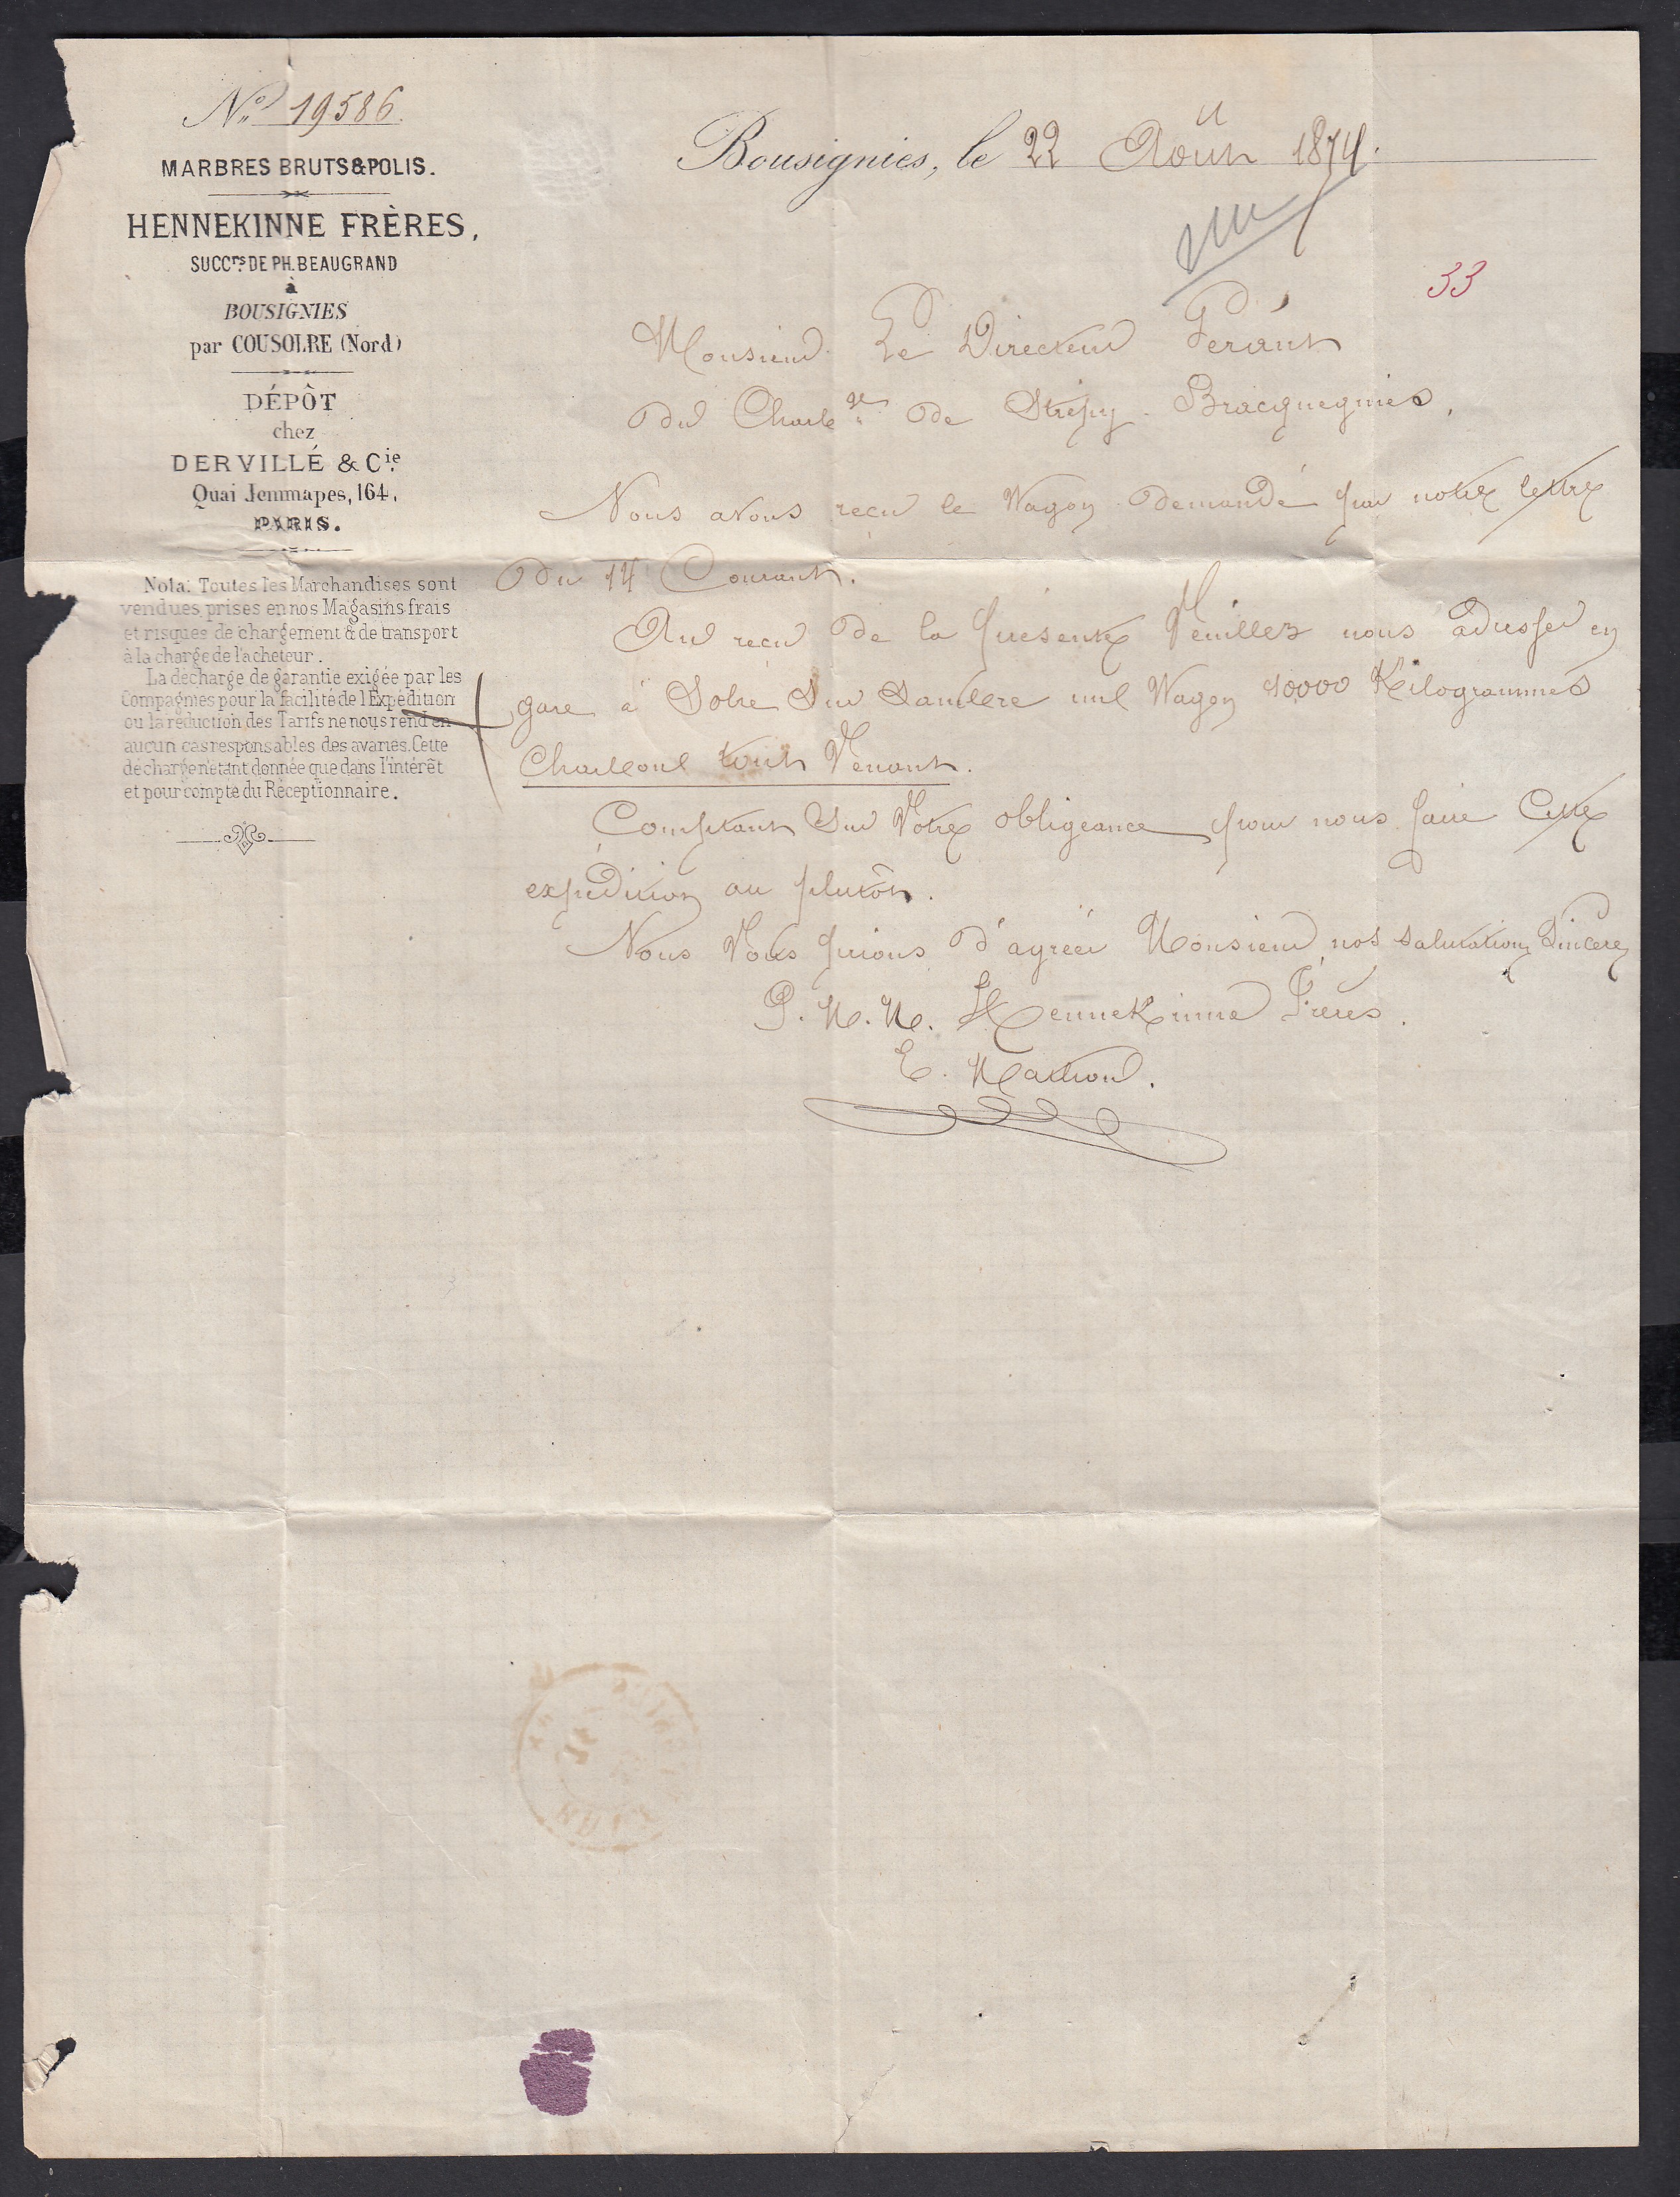 No 19586.
MARBRES BRUTS & POLIS.
HENNEKINNE FRÈRES,
SUCCrs DE PH. BEAUGRAND
à
BOUSIGNIES
par COUSOLRE (Nord)
DÉPÔT
chez
DERVILLÉ & Cie
Quai Jemmapes, 164,
PARIS.
Nota: Toutes les Marchandises sont
vendues prises en nos Magasins frais
et risques de chargement & de transport
à la charge de l'acheteur.
La décharge de garantie exigée par les
Compagnies pour la facilité de l'Expédition
ou la réduction des Tarifs ne nous rend en
aucun cas responsables des avaries. Cette
décharge n'étant donnée que dans l'intérêt
et pour compte du Réceptionnaire.
Bousignies, le 22 Août 1874.
33
Monsieur Le Directeur Gérant
du Charb ge de Strépy-Bracquegnies,
Nous avons reçu le Wagon demandé par notre lettre
du 14 Courant.
Au reçu de la présente Veuillez nous adresser en
gare à Solre Sur Sambre un Wagon 10000 Kilogrammes
Charbon tout Venant.
Comptant Sur Votre obligeance pour nous faire Cette
expédition au plutôt.
Nous Vous prions d'agréer Monsieur nos salutations Sincères
P. M. M. Hennekinne Frères.
E.